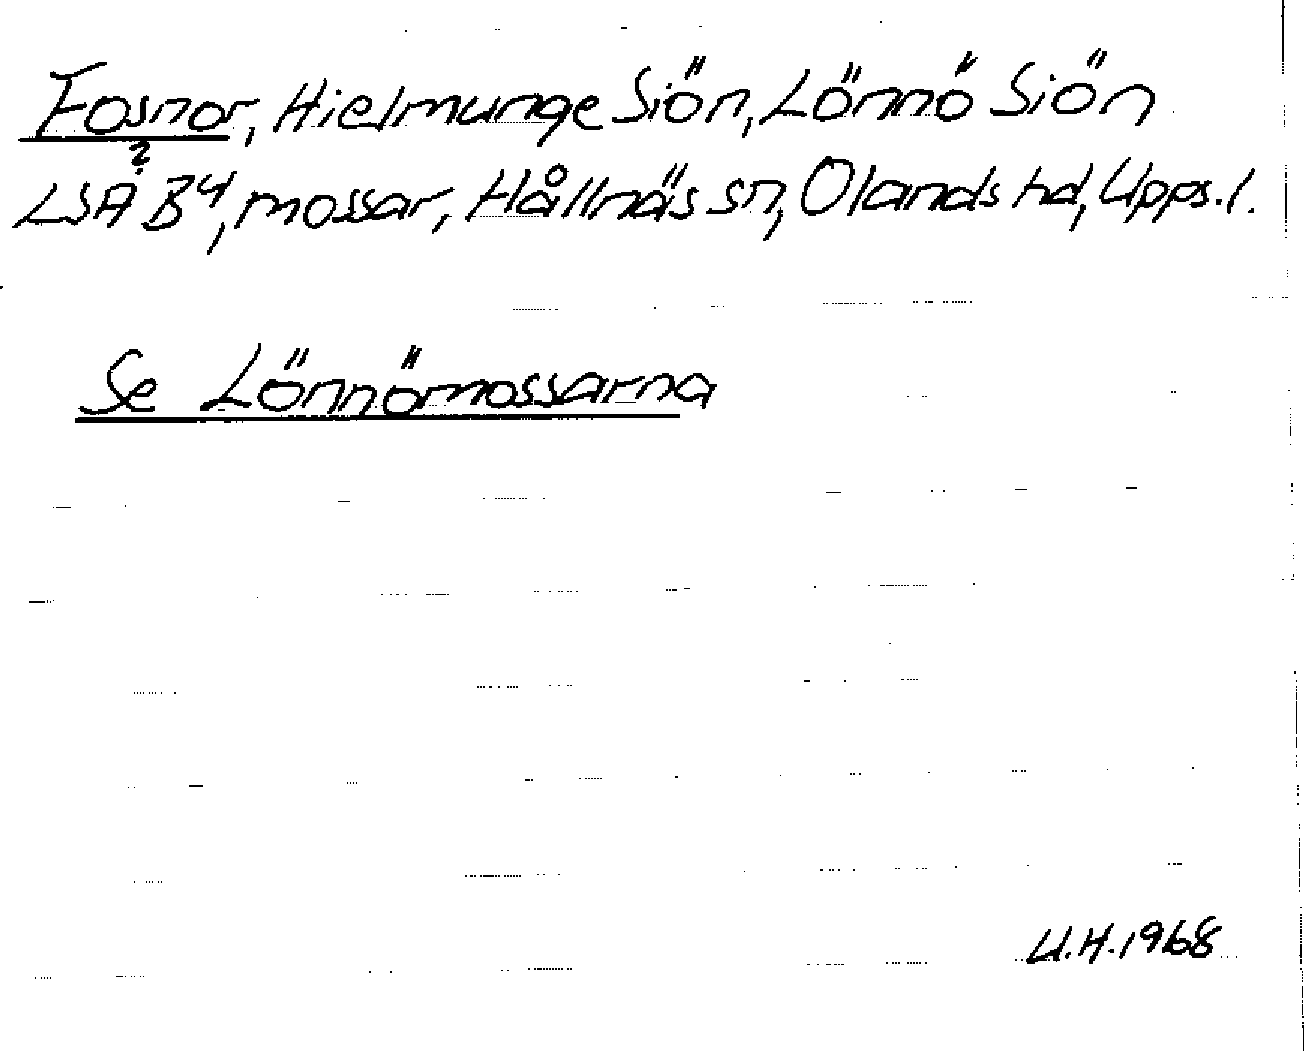 Fosnor, Hielmunge Siön, Lönnö Siön
?
LSA B4, mossar, Hållnäs sn, Olands hd, Upps. l.
Se Lönnömossarna
U.H. 1968